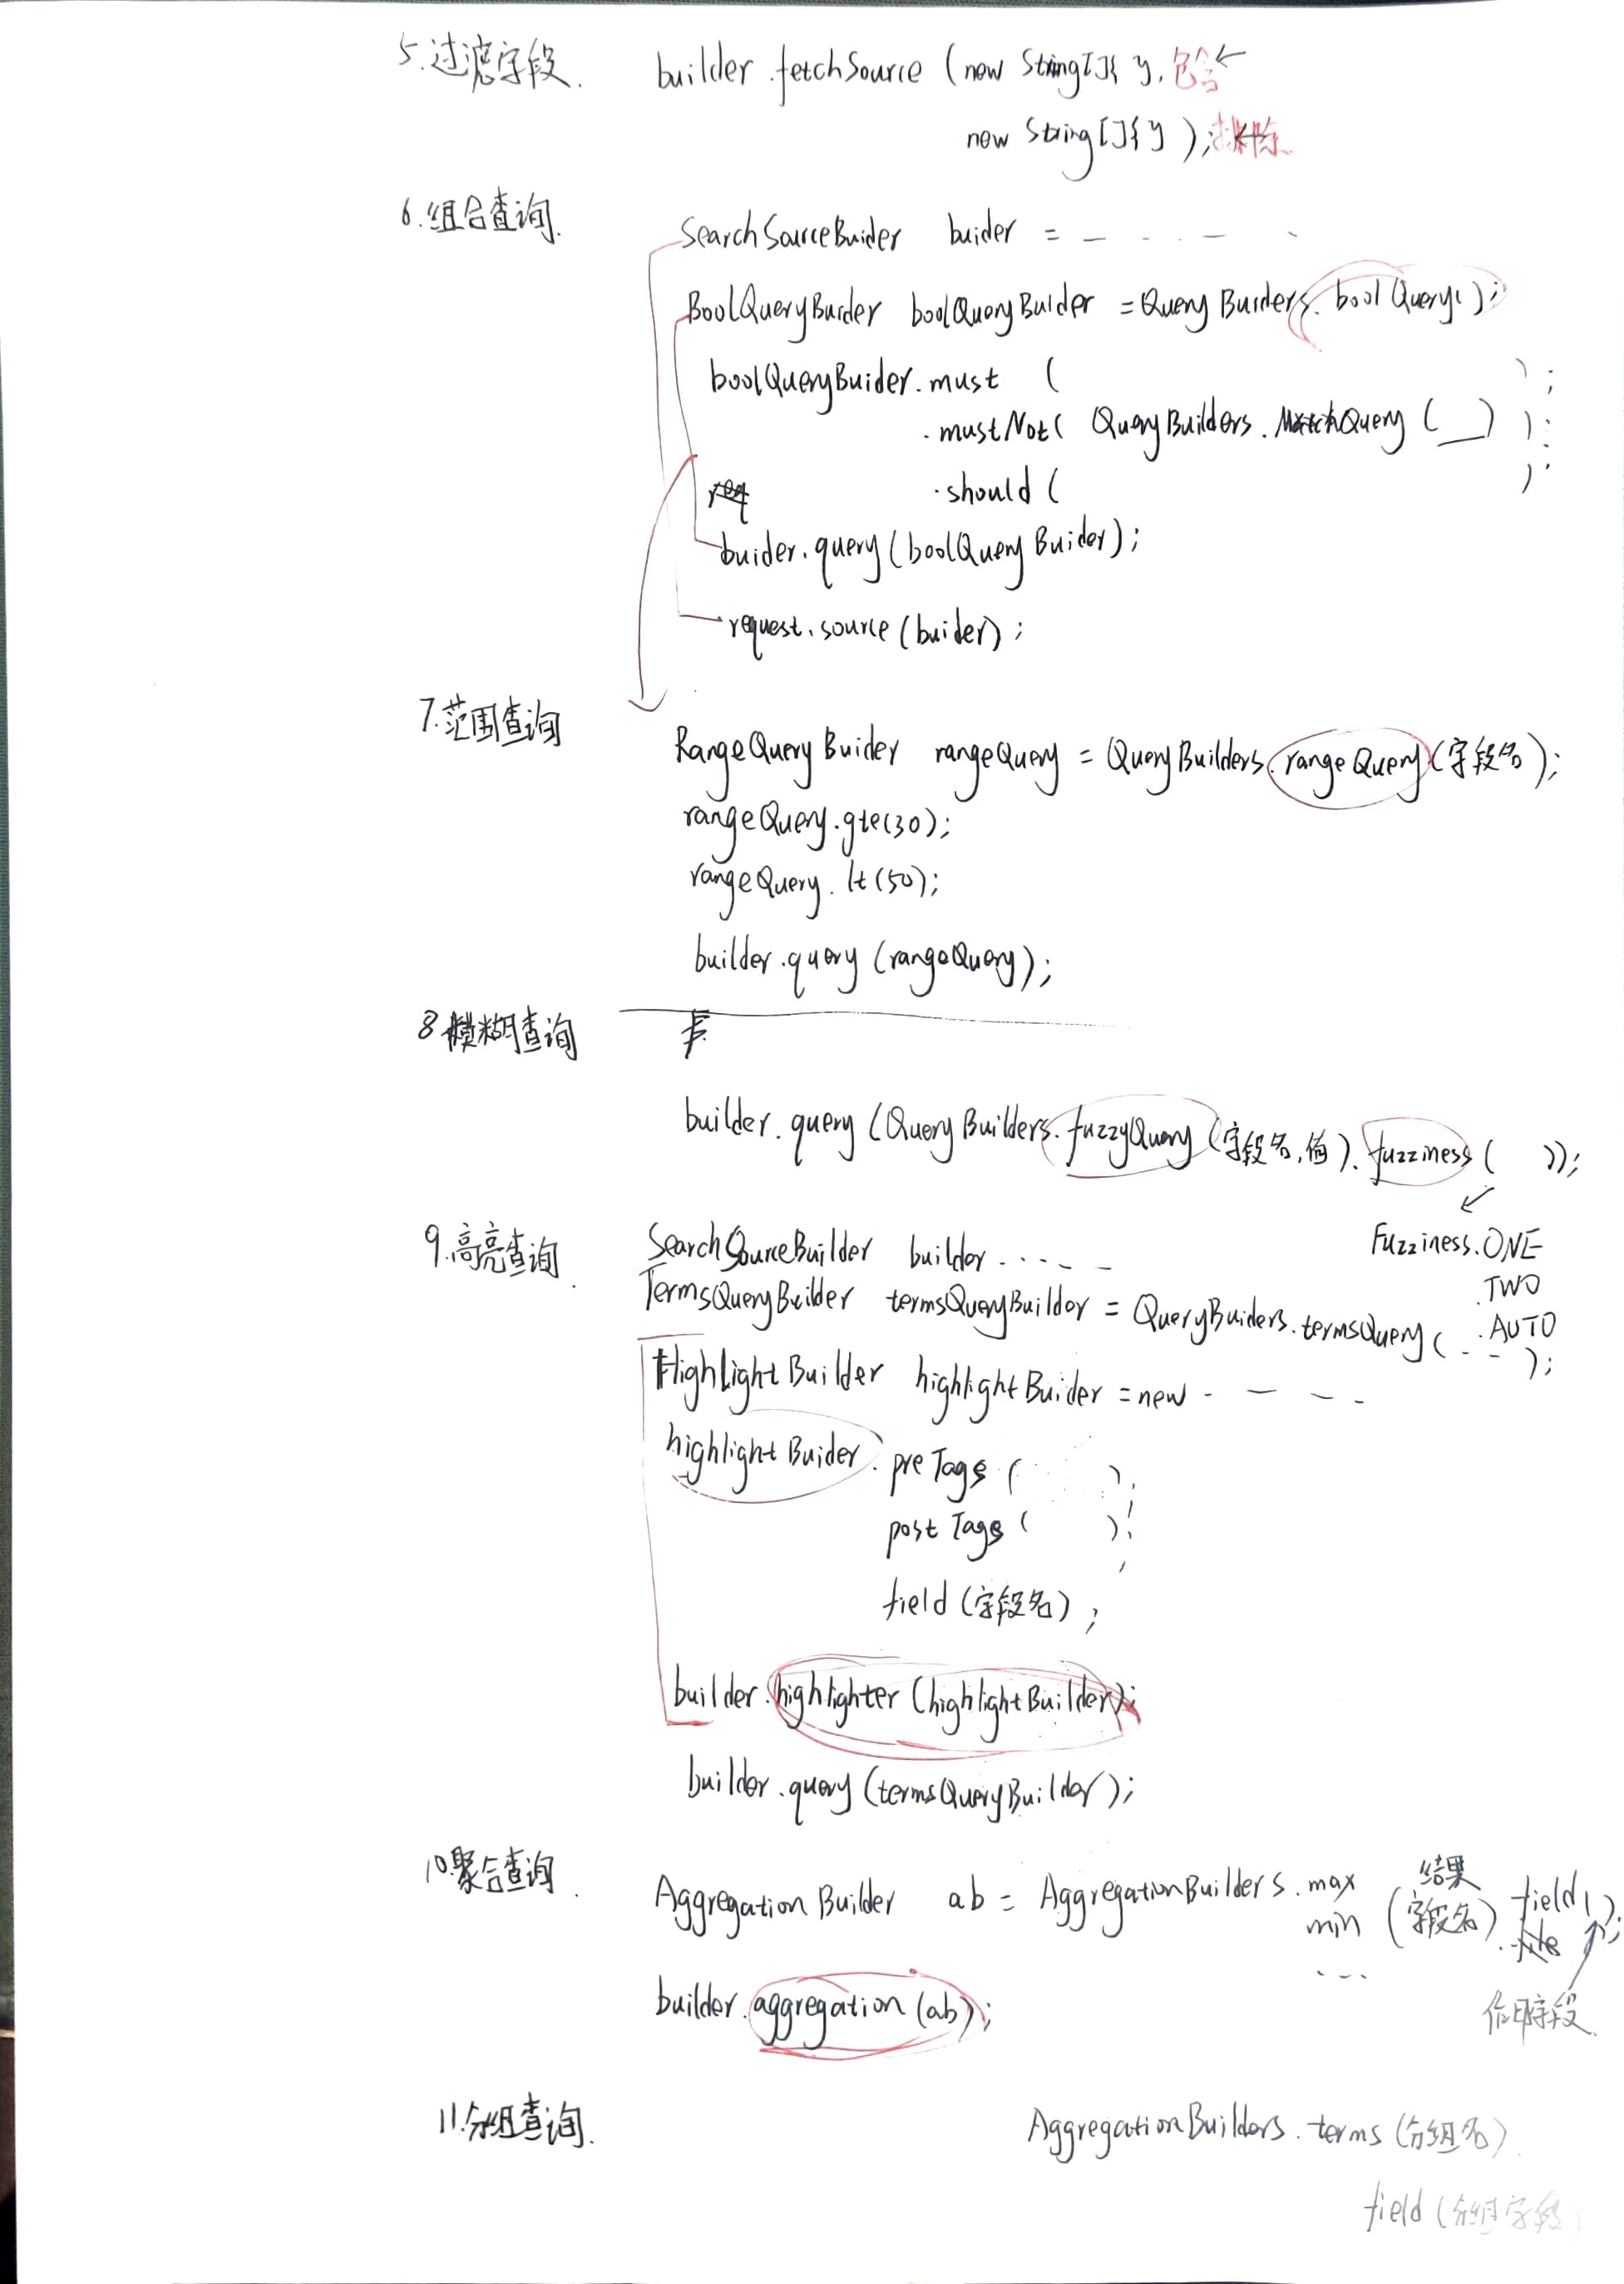 5.过滤字段. builder.fetchSource (new String[]{ }, 包含←
new String[]{ }); 排除
6.组合查询. SearchSourceBuider buider = - - . - .
BoolQueryBuider boolQueryBuider = QueryBuiders.boolQuery();
boolQueryBuider.must ( );
.mustNot( QueryBuilders.MatchQuery (__) );
.should ( );
buider.query(boolQueryBuider);
request.source(buider);
7.范围查询 RangeQueryBuider rangeQuery = QueryBuilders.rangeQuery(字段名);
rangeQuery.gte(30);
rangeQuery.lt(50);
builder.query (rangeQuery);
8模糊查询
builder.query (QueryBuilders.fuzzyQuery(字段名,值).fuzziness( ));
Fuzziness.ONE
.TWO
.AUTO
9.高亮查询. SearchSourceBuilder builder . . . - -
TermsQueryBuilder termsQueryBuilder = QueryBuiders.termsQuery( . - - );
HighLightBuilder highlightBuider = new - - - -
highlightBuider. preTags ( );
postTags ( );
field (字段名);
builder.highlighter (highlightBuilder);
builder.query (termsQueryBuilder);
10.聚合查询. AggregationBuilder ab = AggregationBuilders.max
min
...
(结果
字段名). field( );
作用字段
builder.aggregation (ab);
11.分组查询. AggregationBuilders.terms (分组名)
field (分组字段)